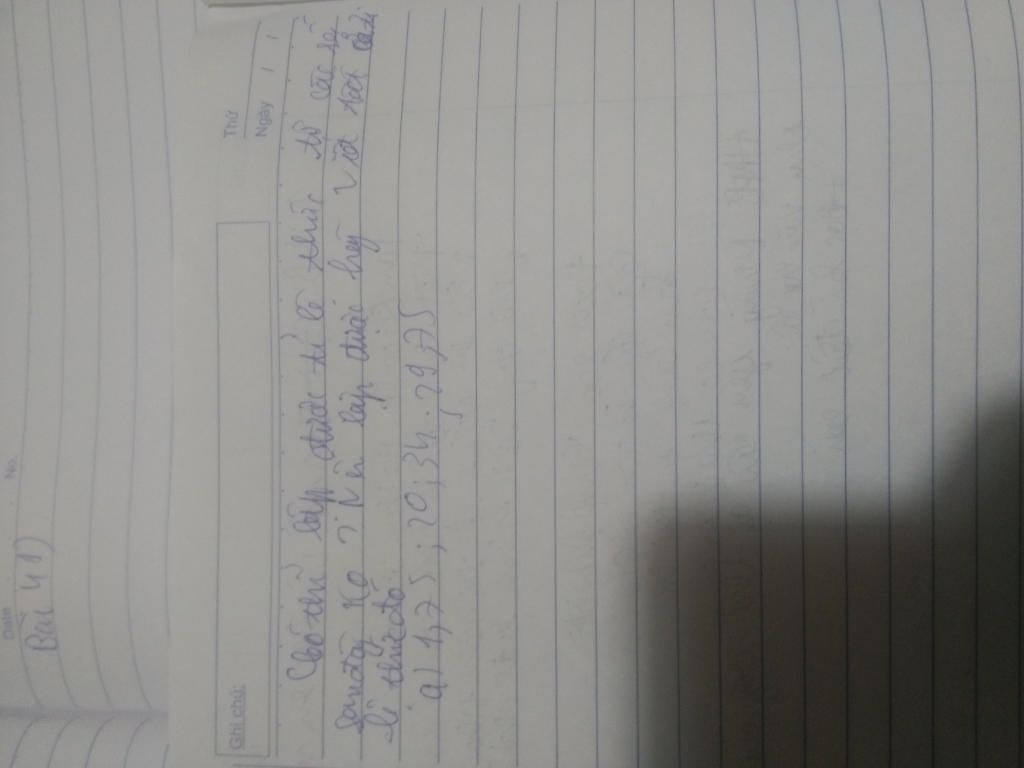 Date No.
Bài 41)
Thứ
Ngày / /
Ghi chú:
lập được tỉ lệ thức từ các số
sau đây ko ? Nếu lập được hãy viết tất cả
lệ thức đó
a) 1,75 ; 20 ; 34 ; 29,75